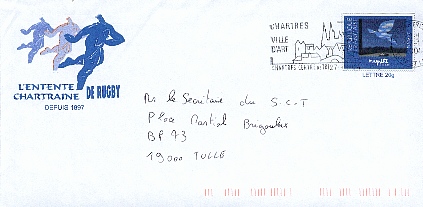 CHARTRES
VILLE
D'ART
CHARTRES
LETTRE 20g
L'ENTENTE
CHARTRAINE DE RUGBY
DEPUIS 1897
Mr le Secrétaire du S.C.T
Place Martial Brigouleix
BP 73
19000 TULLE